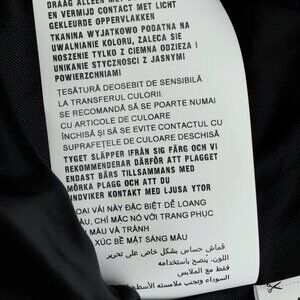 DRAAG ALLEEN MET
EN VERMIJD CONTACT MET LICHT
GEKLEURDE OPPERVLAKKEN
TKANINA WYJATKOWO PODATNA NA
UWALNIANIE KOLORU, ZALECA SIE
NOSZENIE TYLKO Z CIEMNO ODZIEZA I
UNIKANIE STYCZNOSCI Z JASNYMI
POWIERZCHNIAMI
ŢESĂTURĂ DEOSEBIT DE SENSIBILĂ
LA TRANSFERUL CULORII.
SE RECOMANDĂ SĂ SE POARTE NUMAI
CU ARTICOLE DE CULOARE
ÎNCHISĂ ŞI SĂ EVITE CONTACTUL CU
SUPRAFEŢELE DE CULOARE DESCHISĂ
TYGET SLÄPPER IFRÅN SIG FÄRG OCH VI
REKOMMENDERAR DÄRFÖR ATT PLAGGET
ENDAST BÄRS TILLSAMMANS MED
MÖRKA PLAGG OCH ATT DU
UNDVIKER KONTAKT MED LJUSA YTOR
LOẠI VẢI NÀY ĐẶC BIỆT DỄ LOANG
MÀU, CHỈ MẶC NÓ VỚI TRANG PHỤC
MÀU VÀ TRÁNH
XÚC BỀ MẶT SÁNG MÀU
قماش حساس بشكل خاص على تحرير
اللون. ينصح باستخدامه
فقط مع الملابس
السوداء وعدم ملامسته